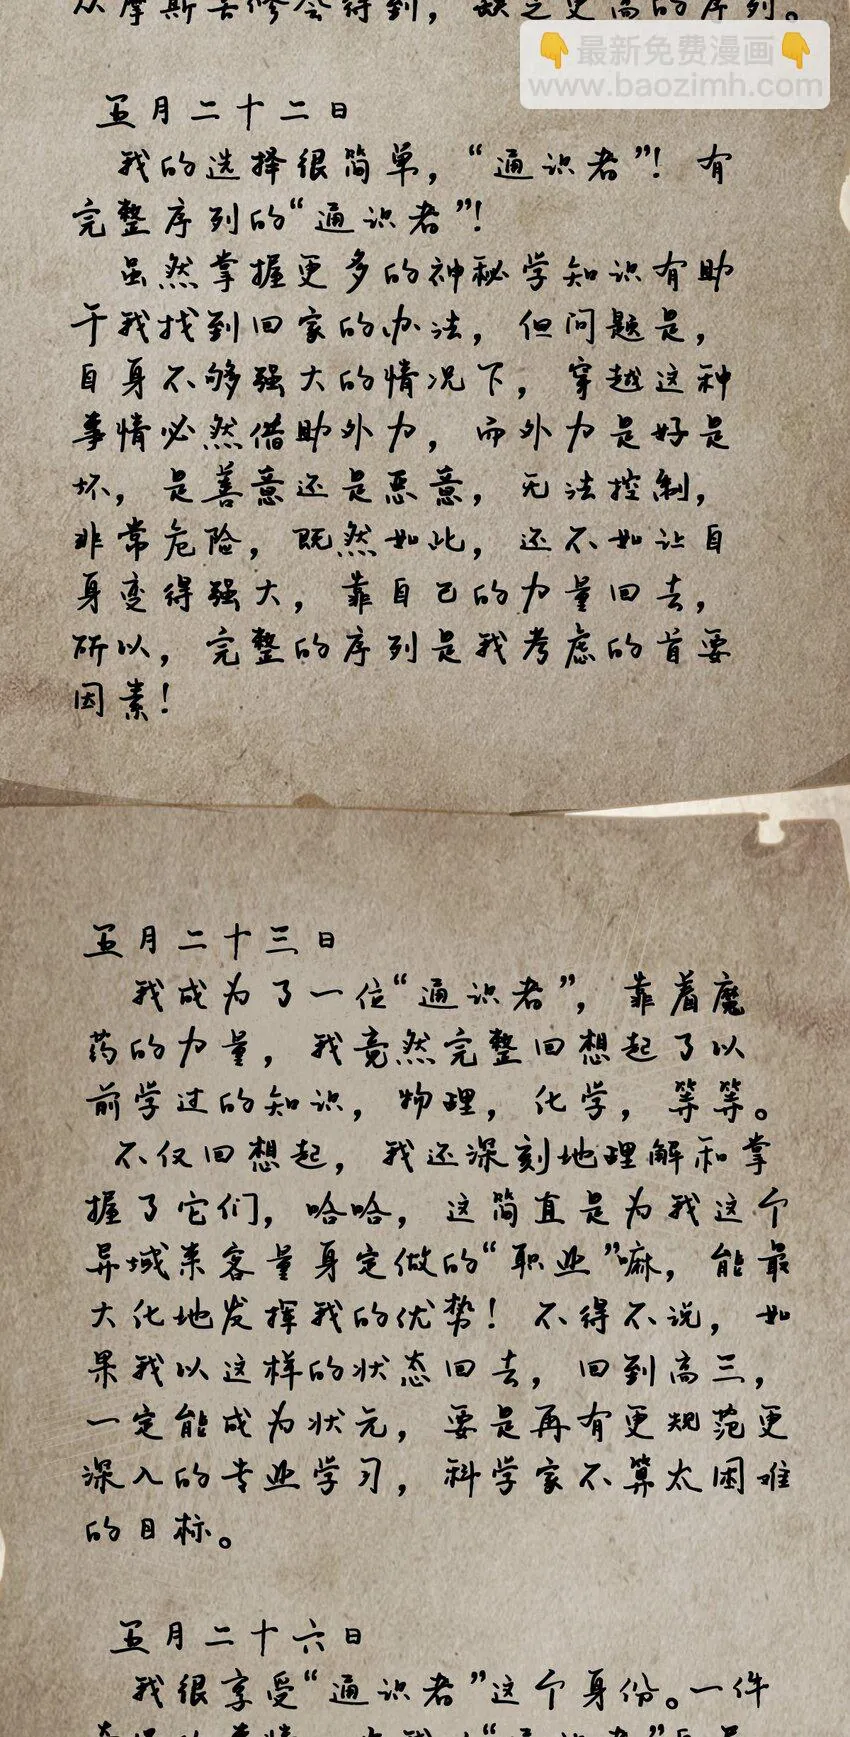 从摩斯苦修会得到，缺乏更高的序列。
👇最新免费漫画👇
www.baozimh.com
五月二十二日
我的选择很简单，“通识者”！有
完整序列的“通识者”！
虽然掌握更多的神秘学知识有助
于我找到回家的办法，但问题是，
自身不够强大的情况下，穿越这种
事情必然借助外力，而外力是好是
坏，是善意还是恶意，无法控制，
非常危险，既然如此，还不如让自
身变得强大，靠自己的力量回去，
所以，完整的序列是我考虑的首要
因素！
五月二十三日
我成为了一位“通识者”，靠着魔
药的力量，我竟然完整回想起了以
前学过的知识，物理，化学，等等。
不仅回想起，我还深刻地理解和掌
握了它们，哈哈，这简直是为我这个
异域来客量身定做的“职业”嘛，能最
大化地发挥我的优势！不得不说，如
果我以这样的状态回去，回到高三，
一定能成为状元，要是再有更规范更
深入的专业学习，科学家不算太困难
的目标。
五月二十六日
我很享受“通识者”这个身份。一件